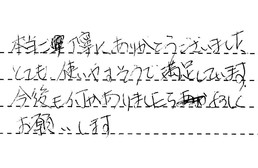 本当に丁寧にありがとうございました
とても使いやすそうで満足しています
今後も何かありましたらよろしく
お願いします